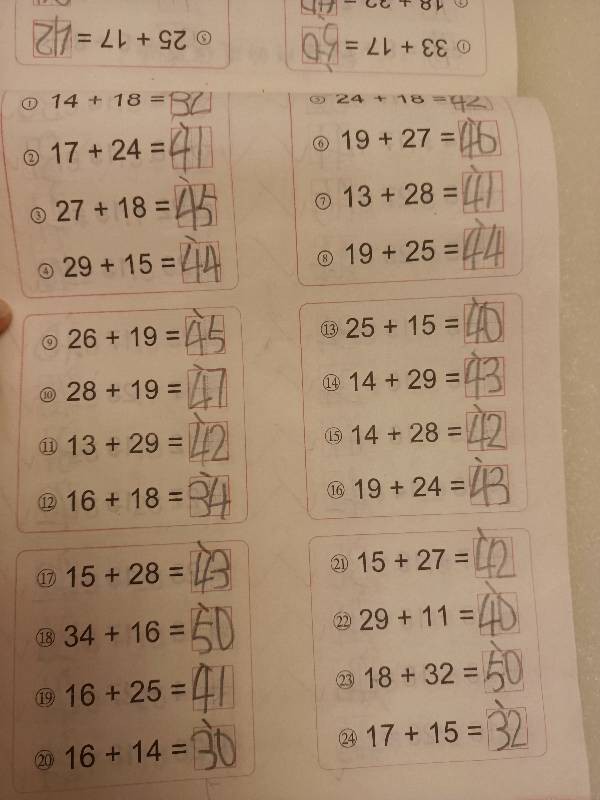 ① 33 + 17 = 50
⑤ 25 + 17 = 42
① 14 + 18 = 32
② 17 + 24 = 41
③ 27 + 18 = 45
④ 29 + 15 = 44
⑤ 24 + 18 = 42
⑥ 19 + 27 = 46
⑦ 13 + 28 = 41
⑧ 19 + 25 = 44
⑨ 26 + 19 = 45
⑩ 28 + 19 = 47
⑪ 13 + 29 = 42
⑫ 16 + 18 = 34
⑬ 25 + 15 = 40
⑭ 14 + 29 = 43
⑮ 14 + 28 = 42
⑯ 19 + 24 = 43
⑰ 15 + 28 = 43
⑱ 34 + 16 = 50
⑲ 16 + 25 = 41
⑳ 16 + 14 = 30
㉑ 15 + 27 = 42
㉒ 29 + 11 = 40
㉓ 18 + 32 = 50
㉔ 17 + 15 = 32